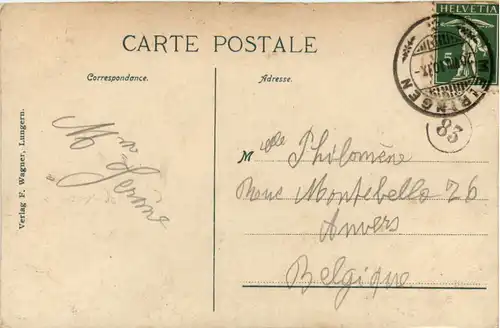 CARTE POSTALE
HELVETIA
5
MEIRINGEN
Correspondance.
Adresse.
85
Melle Philomène
Rue Montebello 26
Anvers
Belgique
Verlag F. Wagner, Lungern.